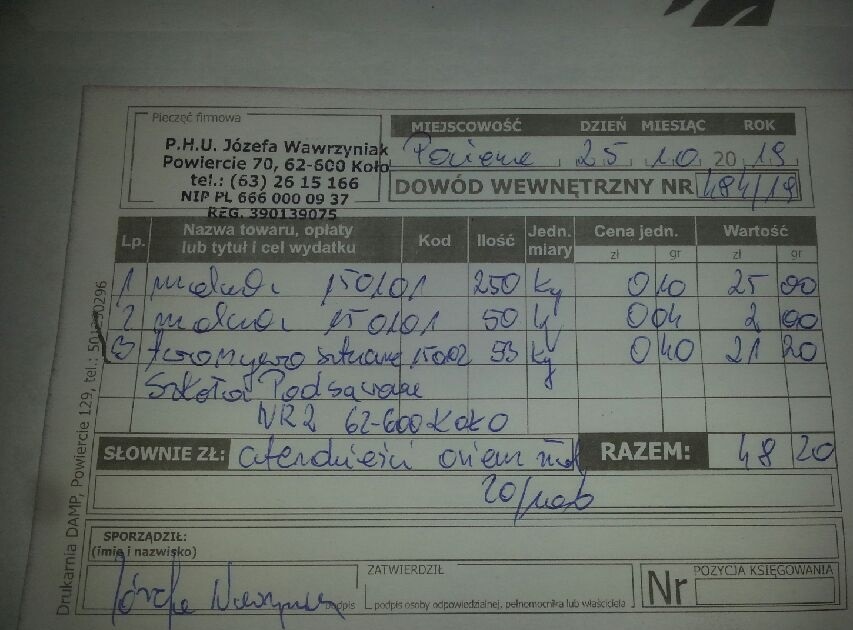 Pieczęć firmowa
P.H.U. Józefa Wawrzyniak
Powiercie 70, 62-600 Koło
tel.: (63) 26 15 166
NIP PL 666 000 09 37
REG. 390139075
MIEJSCOWOŚĆ DZIEŃ MIESIĄC ROK
25 10 2019
DOWÓD WEWNĘTRZNY NR 484/19
Lp. Nazwa towaru, opłaty lub tytuł i cel wydatku Kod Ilość Jedn. miary Cena jedn. zł gr Wartość zł gr
1 150101 250 kg 0 10 25 00
2 150101 50 kg 0 04 2 00
3 sztuczne 15002 53 kg 0 40 21 20
Szkoła Podstawowa
NR 2 62-600 Koło
SŁOWNIE ZŁ: czterdzieści osiem RAZEM: 48 20
20/100
SPORZĄDZIŁ:
(imię i nazwisko)
podpis
ZATWIERDZIŁ
podpis osoby odpowiedzialnej, pełnomocnika lub właściciela
Nr POZYCJA KSIĘGOWANIA
Drukarnia DAMP, Powiercie 129, tel.: 501290296